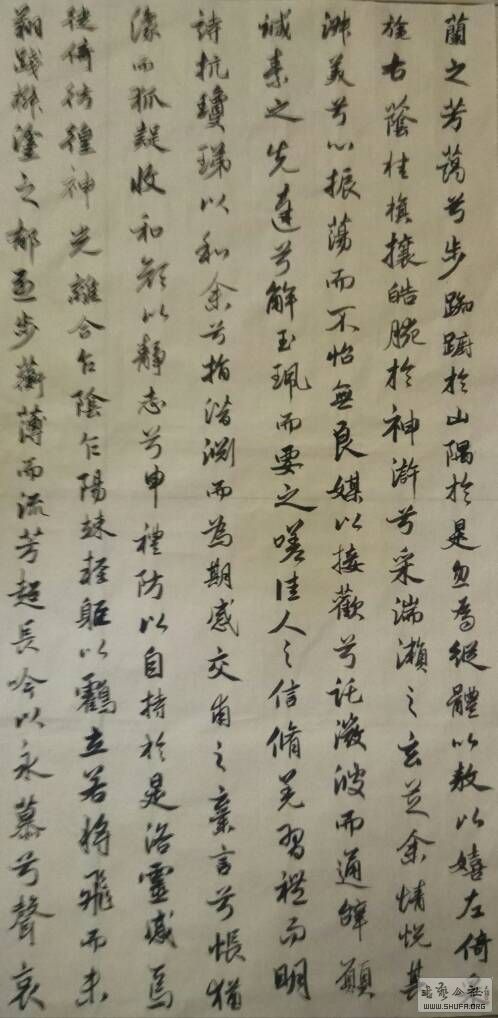 蘭之芳藹兮步踟躕於山隅於是忽焉縱體以敖以嬉左倚
旄右蔭桂旗攘皓腕於神滸兮采湍瀨之玄芝余情悅其
淑美兮心振蕩而不怡無良媒以接歡兮託微波而通辭願
誠素之先達兮解玉珮而要之嗟佳人之信脩羌習禮而明
詩抗瓊珶以和余兮指潛淵而為期感交甫之棄言兮悵猶
豫而狐疑收和顏以靜志兮申禮防以自持於是洛靈感焉
徙倚彷徨神光離合乍陰乍陽竦輕軀以鶴立若將飛而未
翔踐椒塗之郁烈步蘅薄而流芳超長吟以永慕兮聲哀
WWW.SHUFA.ORG